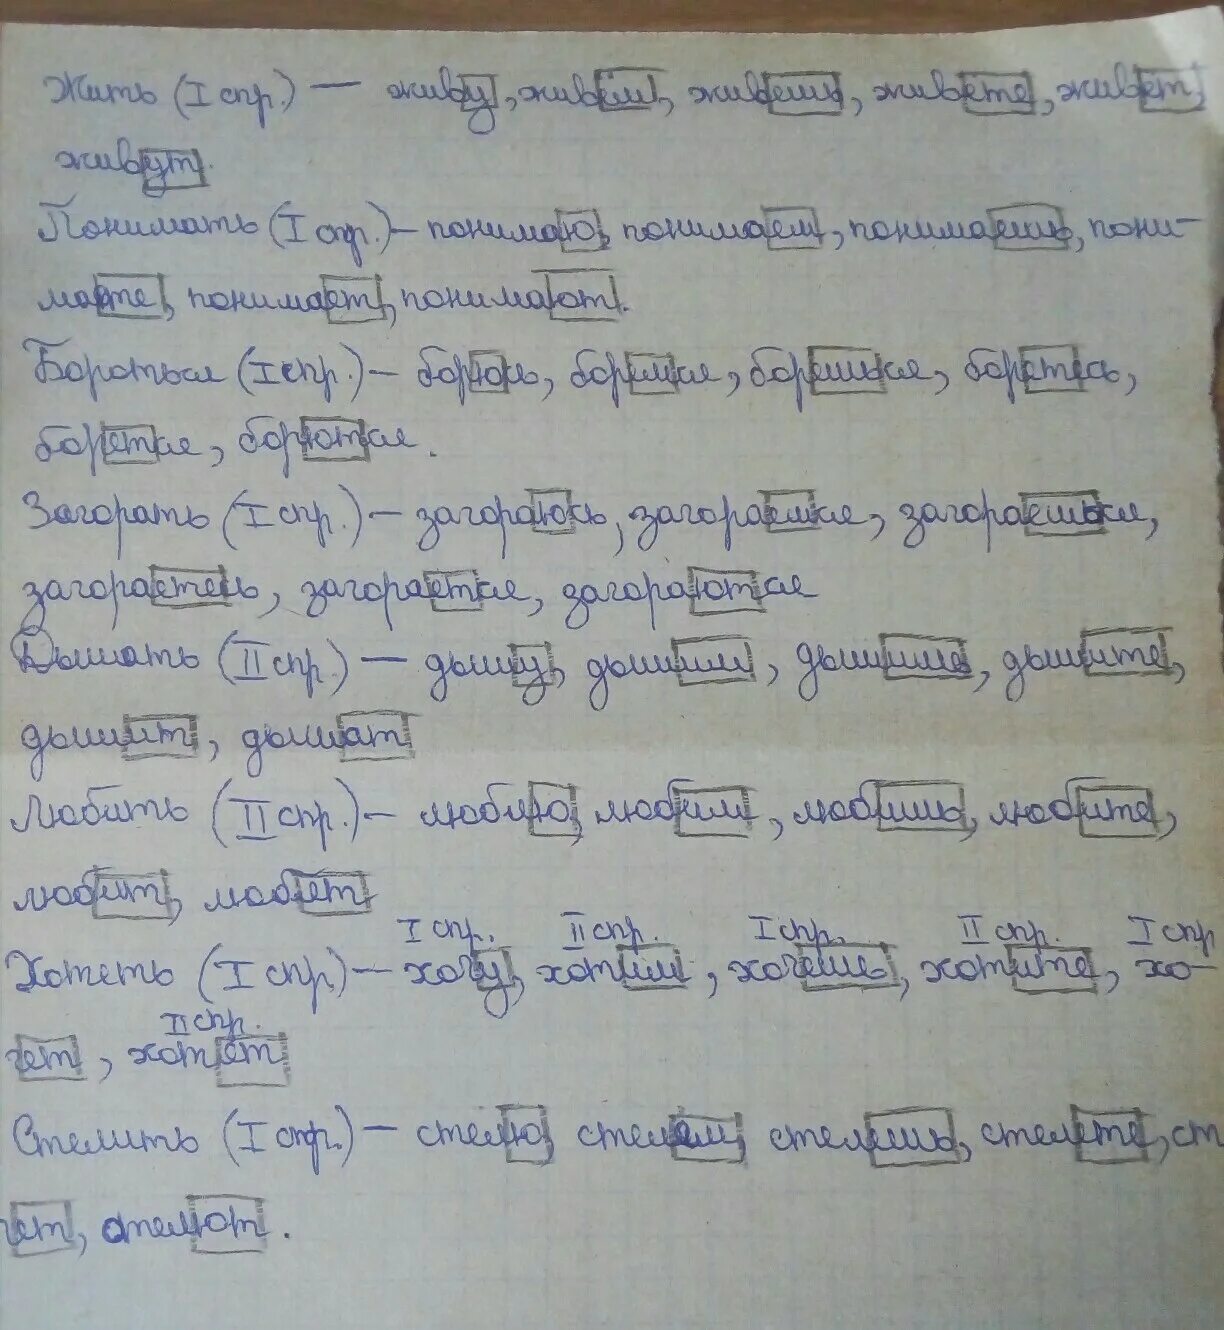 Жить (I спр.) — живу, живём, живёшь, живёте, живёт,
живут.
Понимать (I спр.) – понимаю, понимаем, понимаешь, пони-
маете, понимает, понимают.
Бороться (I спр.) – борюсь, боремся, борешься, боретесь,
борется, борются.
Загорать (I спр.) – загораюсь, загораемся, загораешься,
загораетесь, загорается, загораются
Дышать (II спр.) — дышу, дышим, дышишь, дышите,
дышит, дышат
Любить (II спр.) – люблю, любим, любишь, любите,
любит, любят
I спр. II спр. I спр. II спр. I спр
Хотеть (I спр.) – хочу, хотим, хочешь, хотите, хо-
II спр.
чет, хотят
Стелить (I спр.) – стелю, стелем, стелешь, стелете, ст
лет, стелют.